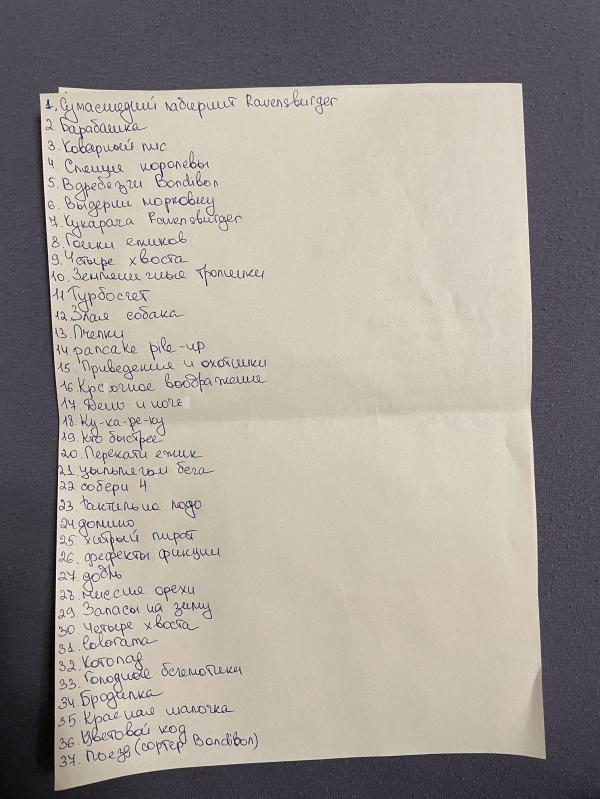 1. Сумасшедший лабиринт Ravensburger
2. Барабашка
3. Коварный лис
4. Спящие королевы
5. Вдребезги Bondibon
6. Выдерни морковку
7. Кукарача Ravensburger
8. Гонки ежиков
9. Четыре хвоста
10. Земляничные тропинки
11. Турбосчет
12. Злая собака
13. Пчелки
14. pancake pile-up
15. Приведения и охотники
16. Красочное воображение
17. День и ночь
18. Ку-ка-ре-ку
19. Кто быстрее
20. Перекати ежик
21. цыплячьи бега
22 собери 4
23. Тактильно лодо
24 домино
25 хитрый пират
26. дефекты фикции
27. добль
28. миссия орехи
29. Запасы на зиму
30. Четыре хвоста
31. Colorama
32. Котопад
33. Голодные бегемотики
34. Бродилка
35. Красная шапочка
36. Цветовой код
37. Поезд (сортер Bondibon)